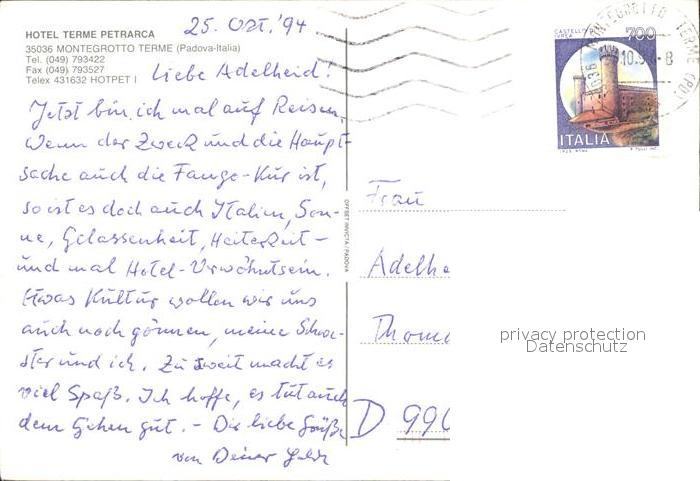 HOTEL TERME PETRARCA
35036 MONTEGROTTO TERME (Padova-Italia)
Tel. (049) 793422
Fax (049) 793527
Telex 431632 HOTPET I
25. Okt. '94
Liebe Adelheid!
Jetzt bin ich mal auf Reisen.
Wenn der Zweck und die Haupt-
sache auch die Fango-Kur ist,
so ist es doch auch Italien, Son-
ne, Gelassenheit, Heiterkeit –
und mal Hotel-Verwöhntsein.
Etwas Kultur wollen wir uns
auch noch gönnen, meine Schwe-
ster und ich. Zu zweit macht es
viel Spaß. Ich hoffe, es tut auch
dem Gehen gut. – Die liebe Grüße
von Deiner
OFFSET INVICTA / PADOVA
CASTELLO DI
700
ITALIA
10.9
-8
Frau
Adelhe
Thoma
D 990
privacy protection
Datenschutz